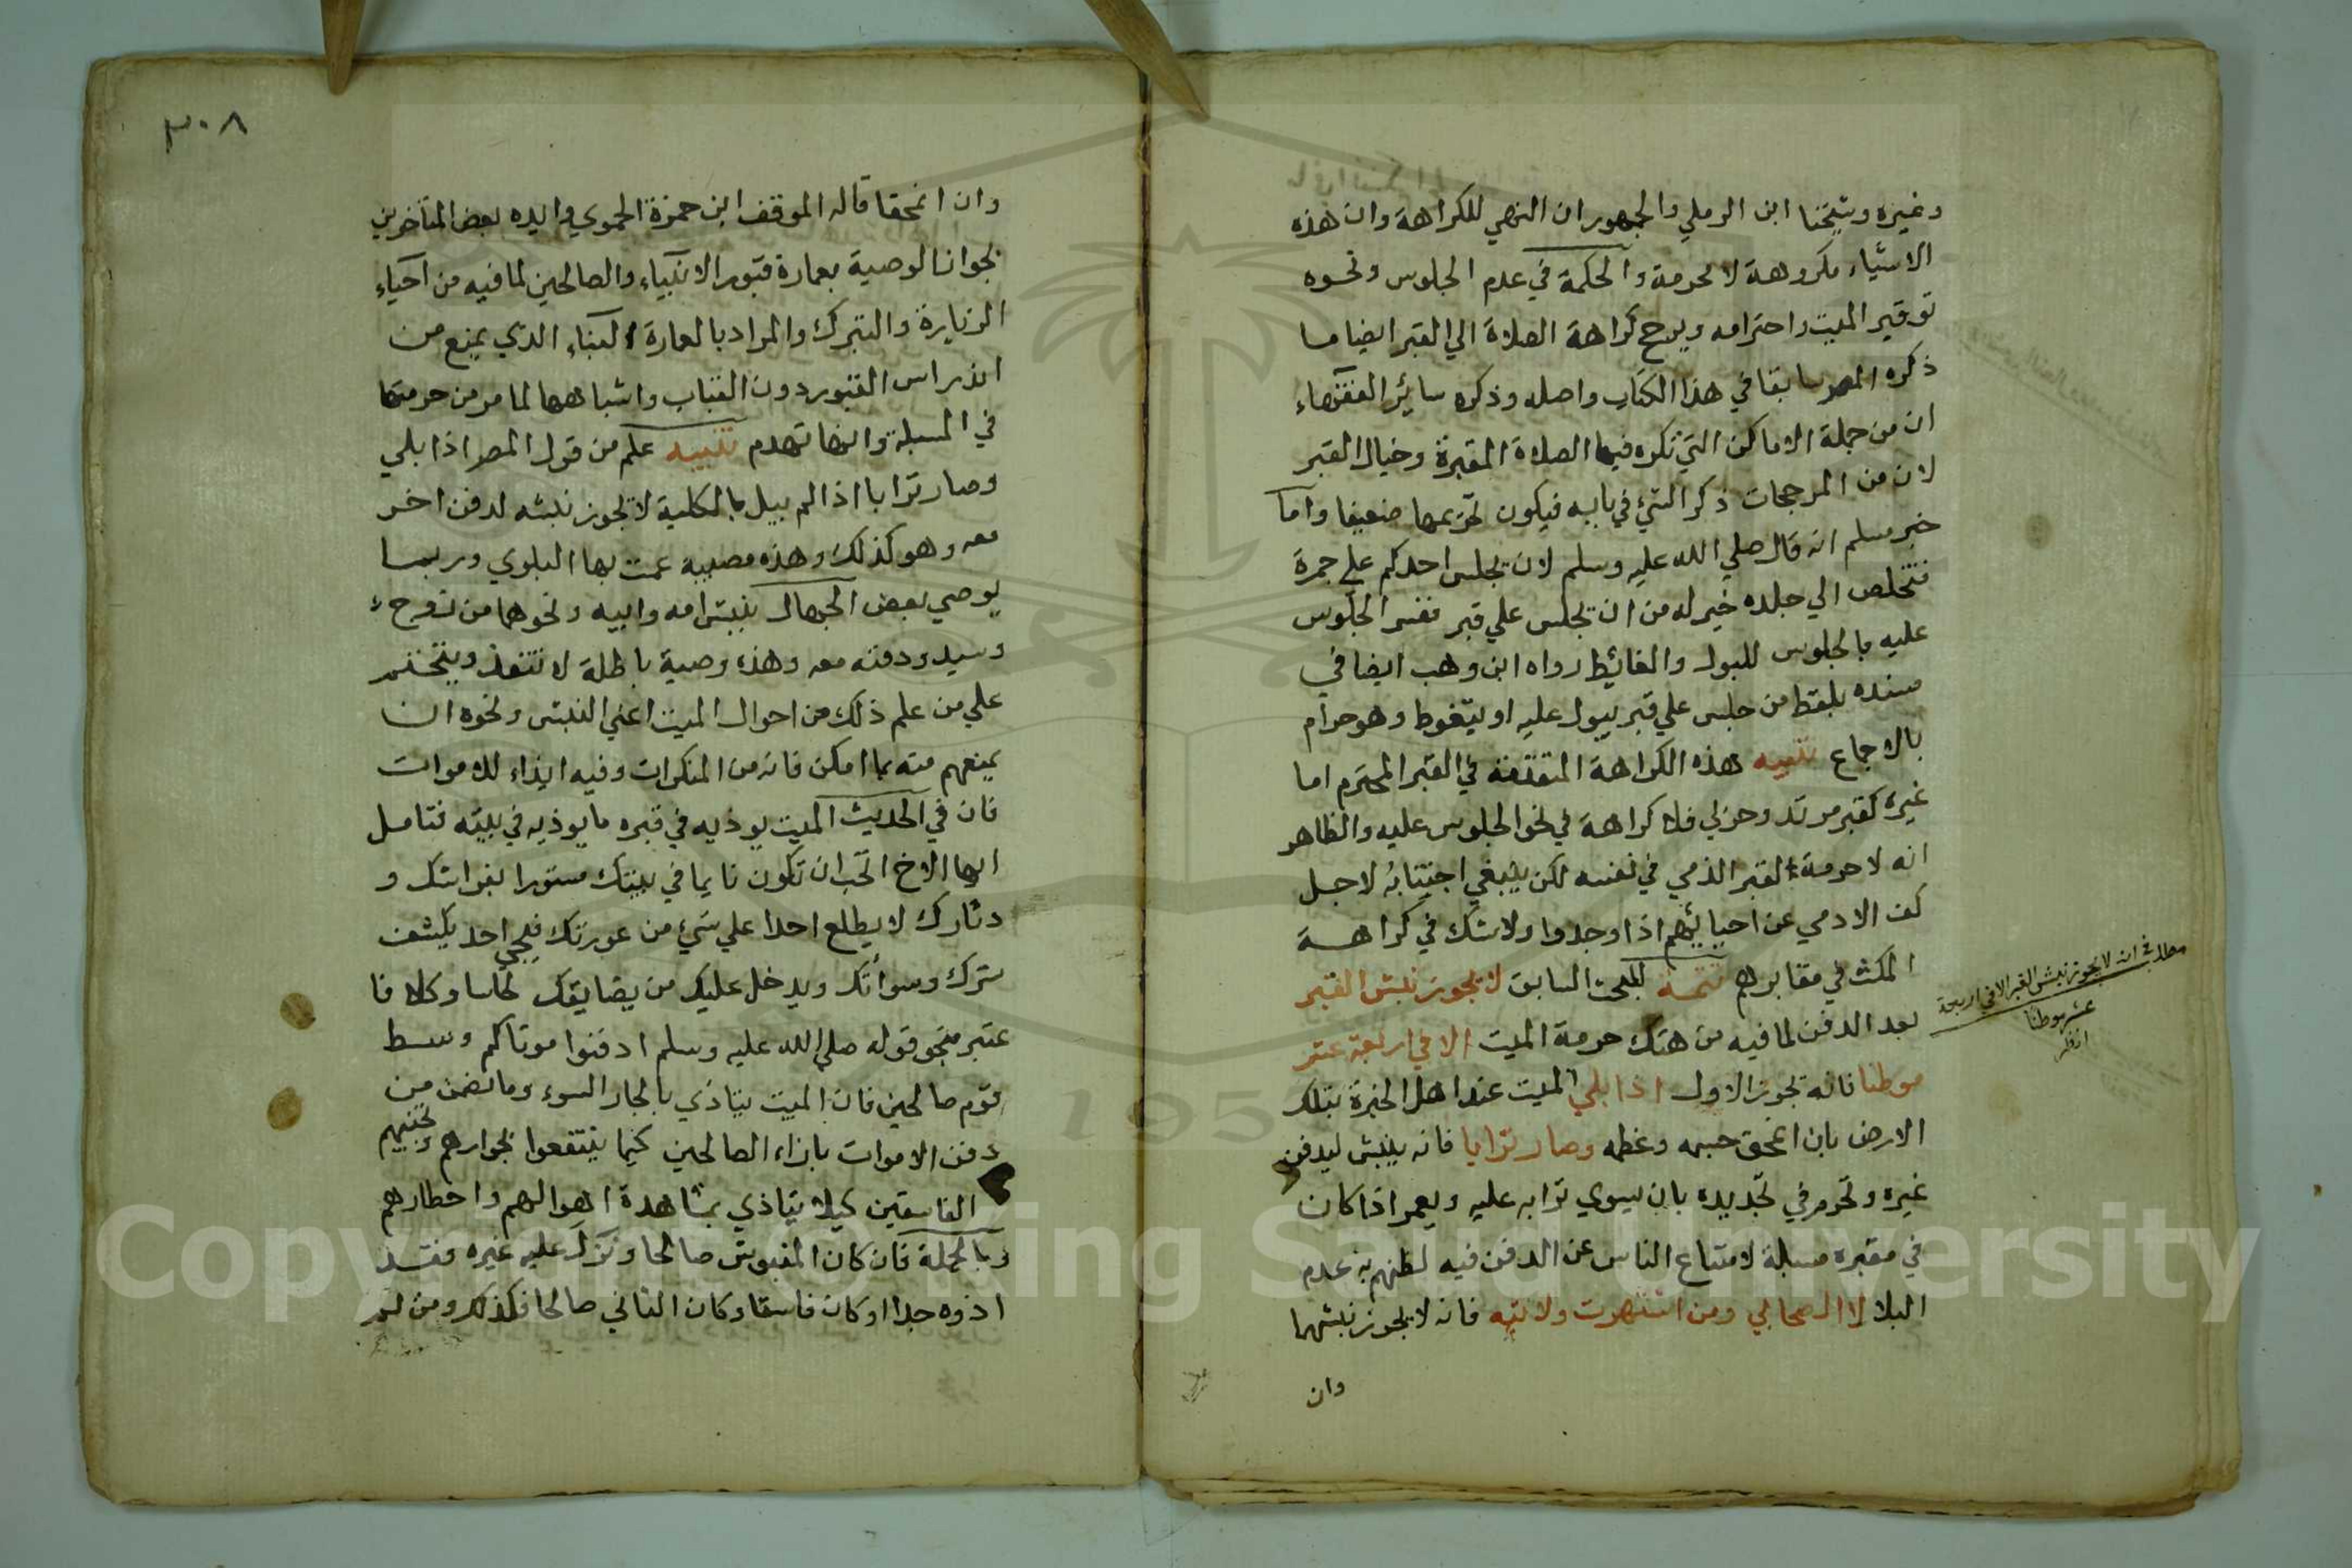 وغيره وشيخنا ابن الرملي والجمهور ان النهي للكراهة وان هذه
الاشياء مكروهة لا محرمة والحكمة في عدم الجلوس ونحوه
توقير الميت واحترامه ويرجح كراهة الصلاة الي القبر ايضا ما
ذكره المصر سابقا في هذا الكتاب واصله وذكره سائر الفقهاء
ان من جملة الاماكن التي تكره فيها الصلاة المقبرة وخيال القبر
لان من المرجحات ذكر الشيء في بابه فيكون تحريمها ضعيفا واما
خبر مسلم انه قال صلي الله عليه وسلم لان يجلس احدكم علي جمرة
فتخلص الي جلده خير له من ان يجلس علي قبر ففسر الجلوس
عليه بالجلوس للبول والغائط رواه ابن وهب ايضا في
مسنده بلفظ من جلس علي قبر يبول عليه او يتغوط وهو حرام
بالاجماع تنبيه هذه الكراهة المتقدمة في القبر المحترم اما
غيره كقبر مرتد وحربي فلا كراهة في نحو الجلوس عليه والظاهر
انه لا حرمة لقبر الذمي في نفسه لكن ينبغي اجتنابه لاجل
كف الادمي عن احيائهم اذا وجدوا ولا شك في كراهة
المكث في مقابرهم تتمة للبحث السابق لا يجوز نبش القبر
بعد الدفن لما فيه من هتك حرمة الميت الا في اربعة عشر
موطنا فانه يجوز الاول اذا بلي الميت عند اهل الخبرة بتلك
الارض بان انمحق جسمه وعظمه وصار ترابا فانه ينبش ليدفن
غيره وتحرم في تجديده بان يسوي ترابه عليه ويعمر اذا كان
في مقبرة مسبلة لامتناع الناس عن الدفن فيه لظنهم به عدم
البلا لا الصحابي ومن اشتهرت ولايته فانه لا يجوز نبشهما
وان
مطلب في انه لا يجوز نبش القبر الا في اربعة
عشر موطنا
انظر
٣٠٨
وان انمحقا قاله الموفق ابن حمزة الحموي وايده بعض المتاخرين
بجواز الوصية بعمارة قبور الانبياء والصالحين لما فيه من احياء
الزيارة والتبرك والمراد بالعمارة البناء الذي يمنع من
اندراس القبور دون القباب واشباهها لما مر من حرمتها
في المسبلة وانها تهدم تنبيه علم من قول المصر اذا بلي
وصار ترابا اذا لم يبل بالكلية لا يجوز نبشه لدفن اخر
معه وهو كذلك وهذه مصيبة عمت بها البلوي وربما
يوصي بعض الجهال بنبش امه وابيه ونحوهما من زوج
وسيد ودفنه معه وهذه وصية باطلة لا تنفذ ويتحتم
علي من علم ذلك من احوال الميت اعني النبش ونحوه ان
يمنعهم منه بما امكن فانه من المنكرات وفيه ايذاء للاموات
فان في الحديث الميت يوذيه في قبره ما يوذيه في بيته فتامل
ايها الاخ اتحب ان تكون نايما في بيتك مستورا بفراشك و
دثارك لا يطلع احدا علي شيء من عورتك فيجي احد يكشف
سترك وسواتك ويدخل عليك من يضايقك كاسا وكلا فا
عتبر منجو قوله صلي الله عليه وسلم ادفنوا موتاكم وسط
قوم صالحين فان الميت يتاذي بالجار السوء وما تضمن من
دفن الاموات بازاء الصالحين كيما ينتفعوا بجوارهم وتجنبهم
الفاسقين كيلا يتاذي بمشاهدة اهوالهم واخطارهم
وبالجملة فان كان المنبوش صالحا ونزل عليه غيره فقد
اذوه جدا او كان فاسقا وكان الثاني صالحا فكذلك ومن لم
Copyright © King Saud University
195